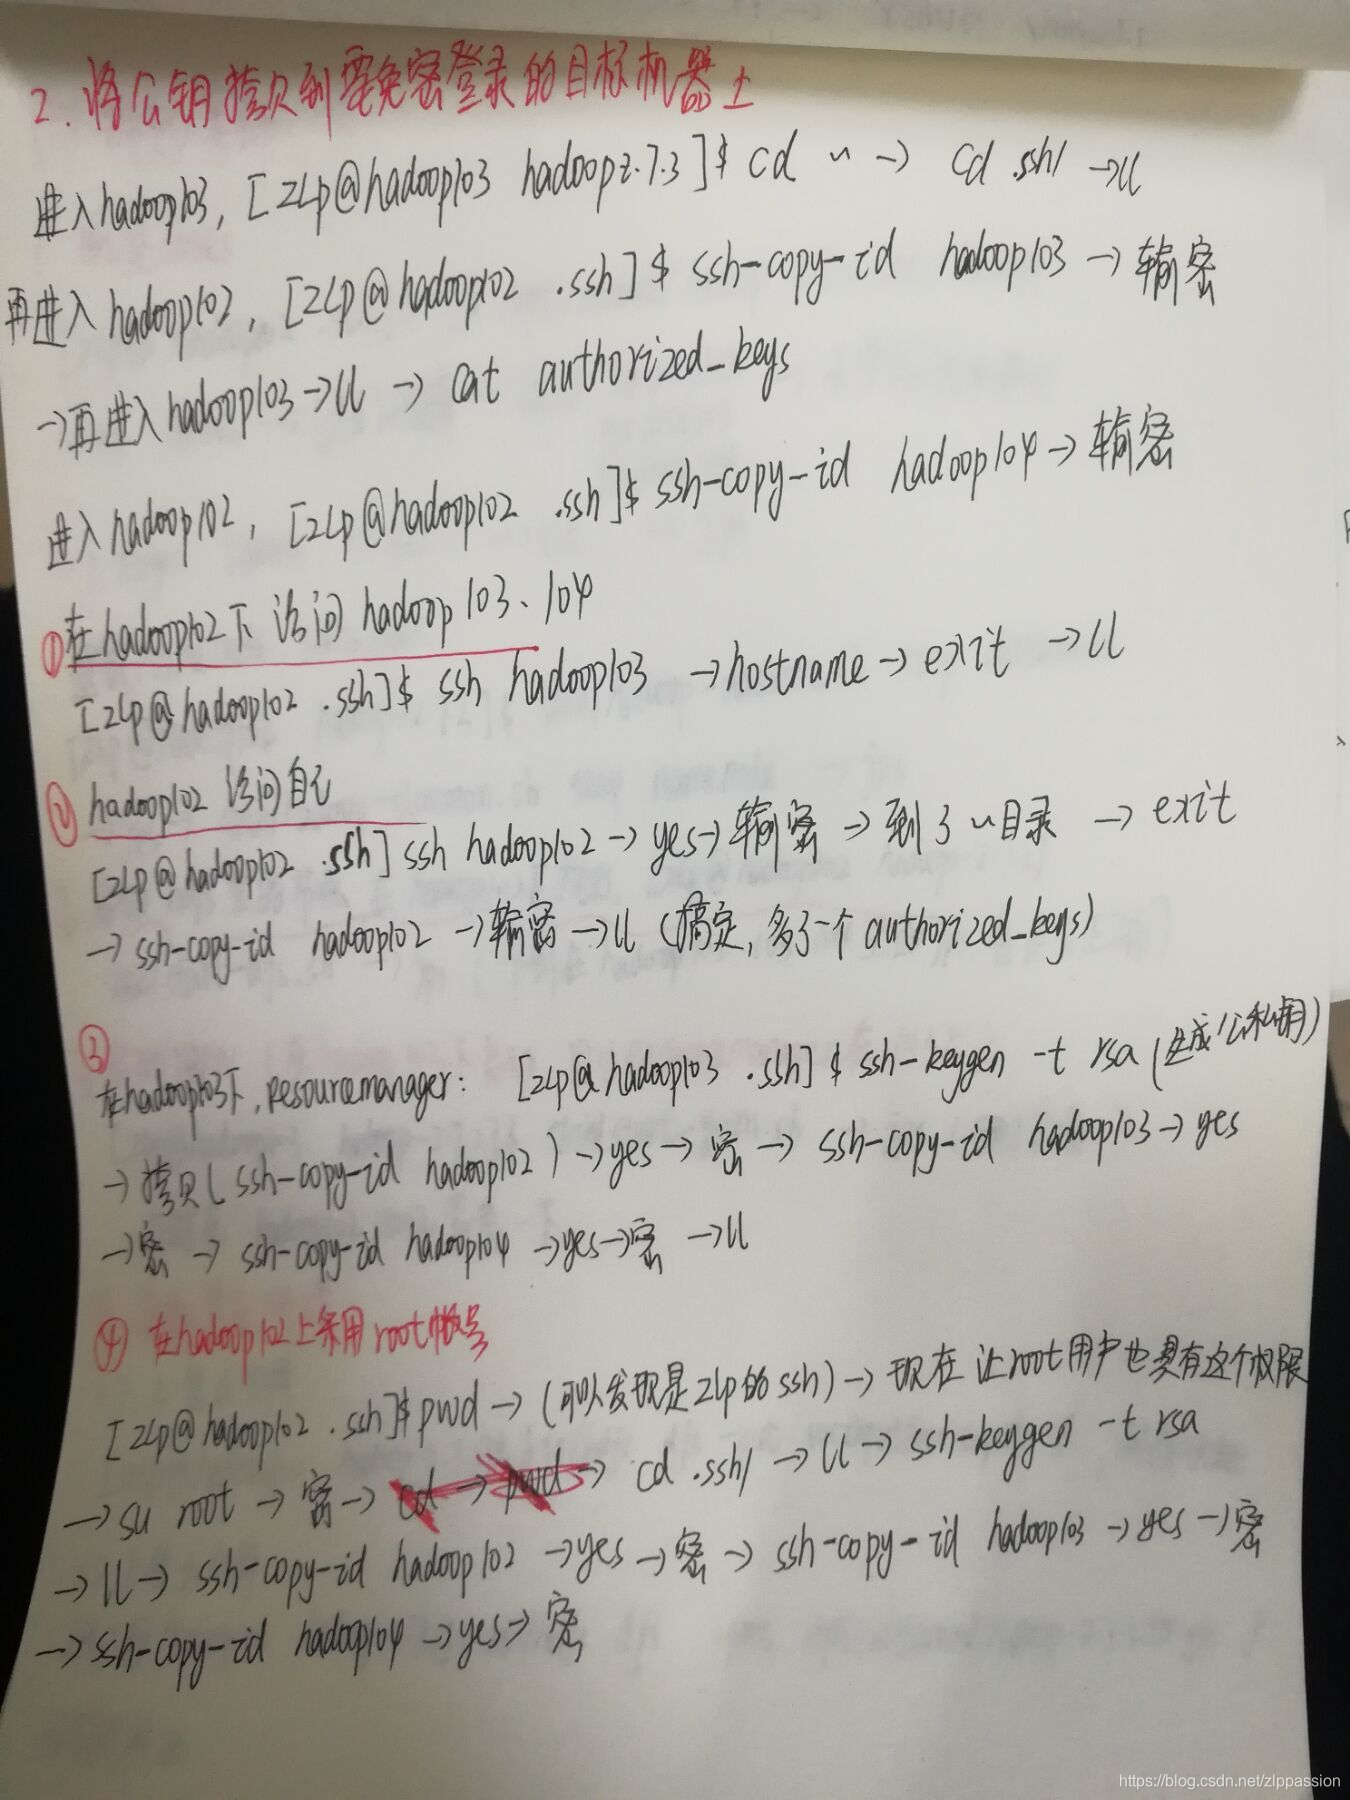 2. 将公钥拷贝到要免密登录的目标机器上
进入hadoop103, [zlp@hadoop103 hadoop2.7.3]$ cd ~ → cd .ssh/ →ll
再进入hadoop102, [zlp@hadoop102 .ssh]$ ssh-copy-id hadoop103 →输密
→再进入hadoop103→ll → cat authorized_keys
进入hadoop102, [zlp@hadoop102 .ssh]$ ssh-copy-id hadoop104→输密
①在hadoop102下访问hadoop103、104
[zlp@hadoop102 .ssh]$ ssh hadoop103 →hostname→exit →ll
② hadoop102访问自己
[zlp@hadoop102 .ssh] ssh hadoop102→yes→输密→到了~目录 →exit
→ssh-copy-id hadoop102 →输密→ll (搞定,多了一个authorized_keys)
③
在hadoop103下,resourcemanager: [zlp@hadoop103 .ssh]$ ssh-keygen -t rsa (生成公私钥)
→拷贝(ssh-copy-id hadoop102)→yes→密→ssh-copy-id hadoop103→yes
→密→ssh-copy-id hadoop104→yes→密→ll
④ 在hadoop102上采用root帐号
[zlp@hadoop102 .ssh]$pwd→(可以发现是zlp的ssh)→现在让root用户也具有这个权限
→su root→密→cd→pwd→cd .ssh/→ll→ssh-keygen -t rsa
→ll→ssh-copy-id hadoop102→yes→密→ssh-copy-id hadoop103→yes→密
→ssh-copy-id hadoop104→yes→密
https://blog.csdn.net/zlppassion